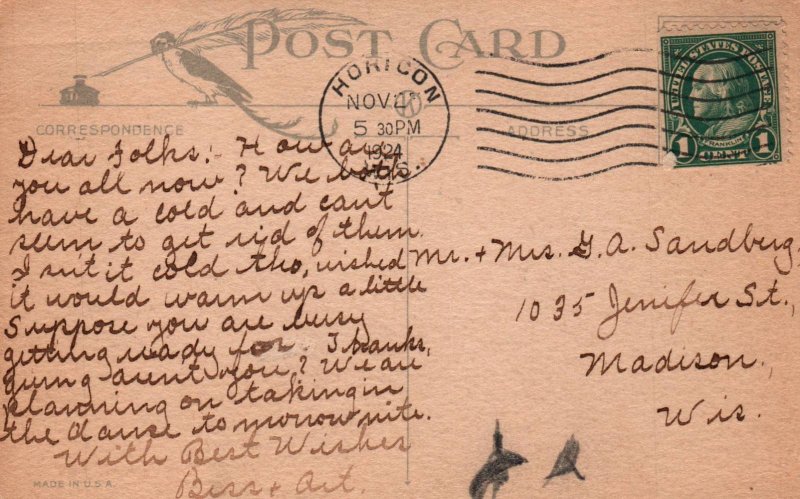 POST CARD
CORRESPONDENCE
ADDRESS
HORICON
NOV
5 30PM
1924
WIS.
UNITED STATES POSTAGE
FRANKLIN
1 CENT 1
Dear Folks:- How are
you all now? We both
have a cold and cant
seem to get rid of them.
Isn't it cold tho, wished
it would warm up a little
Suppose you are busy
getting ready for Thanks,
giving arent you? We are
planning on taking in
the dance to morrow nite.
With Best Wishes
Bess + Art.
Mr. + Mrs. G. A. Sandberg,
1035 Jenifer St.,
Madison,
Wis.
MADE IN U.S.A.